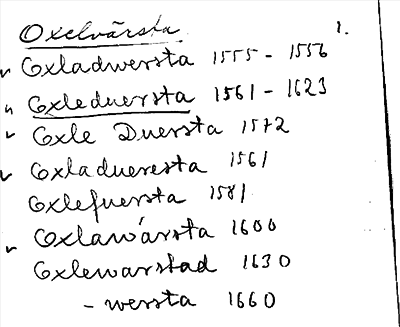 Oxelvärsta 1.
Oxladwersta 1555 - 1556
Oxleduersta 1561 - 1623
Oxle Duersta 1572
Oxladueresta 1561
Oxlefuersta 1581
Oxlawärsta 1600
Oxlewarstad 1630
- wersta 1660